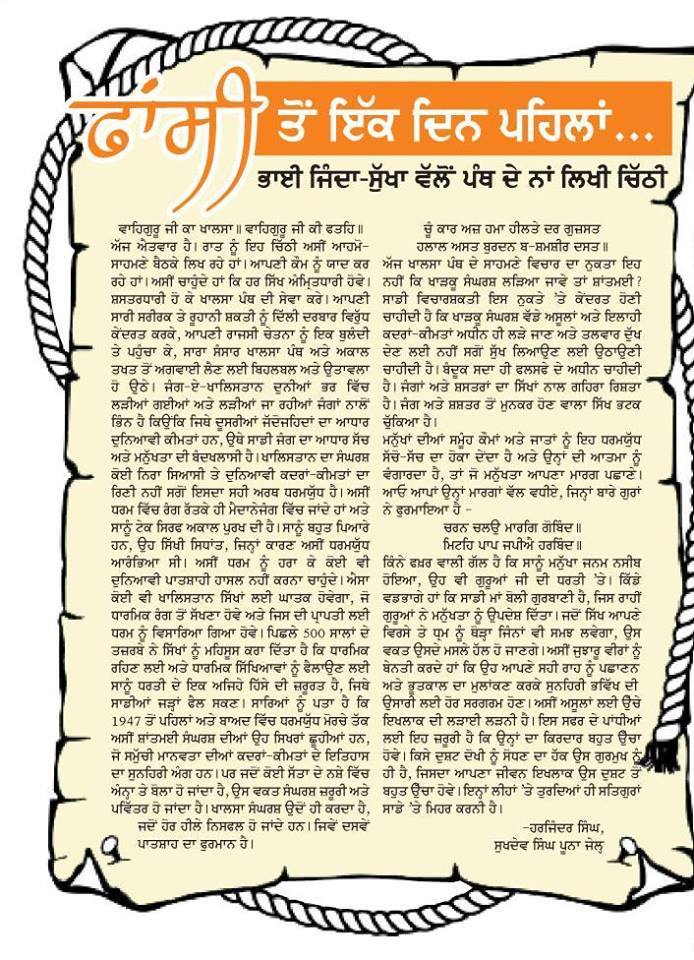 ਫਾਂਸੀ ਤੋਂ ਇੱਕ ਦਿਨ ਪਹਿਲਾਂ...
ਭਾਈ ਜਿੰਦਾ-ਸੁੱਖਾ ਵੱਲੋਂ ਪੰਥ ਦੇ ਨਾਂ ਲਿਖੀ ਚਿੱਠੀ
ਵਾਹਿਗੁਰੂ ਜੀ ਕਾ ਖਾਲਸਾ॥ ਵਾਹਿਗੁਰੂ ਜੀ ਕੀ ਫਤਹਿ॥
ਅੱਜ ਐਤਵਾਰ ਹੈ। ਰਾਤ ਨੂੰ ਇਹ ਚਿੱਠੀ ਅਸੀਂ ਆਹਮੋ-
ਸਾਹਮਣੇ ਬੈਠਕੇ ਲਿਖ ਰਹੇ ਹਾਂ। ਆਪਣੀ ਕੌਮ ਨੂੰ ਯਾਦ ਕਰ
ਰਹੇ ਹਾਂ। ਅਸੀਂ ਚਾਹੁੰਦੇ ਹਾਂ ਕਿ ਹਰ ਸਿੱਖ ਅੰਮ੍ਰਿਤਧਾਰੀ ਹੋਵੇ।
ਸ਼ਸਤਰਧਾਰੀ ਹੋ ਕੇ ਖਾਲਸਾ ਪੰਥ ਦੀ ਸੇਵਾ ਕਰੇ। ਆਪਣੀ
ਸਾਰੀ ਸਰੀਰਕ ਤੇ ਰੂਹਾਨੀ ਸ਼ਕਤੀ ਨੂੰ ਦਿੱਲੀ ਦਰਬਾਰ ਵਿਰੁੱਧ
ਕੇਂਦਰਤ ਕਰਕੇ, ਆਪਣੀ ਰਾਜਸੀ ਚੇਤਨਾ ਨੂੰ ਇਕ ਬੁਲੰਦੀ
ਤੇ ਪਹੁੰਚਾ ਕੇ, ਸਾਰਾ ਸੰਸਾਰ ਖਾਲਸਾ ਪੰਥ ਅਤੇ ਅਕਾਲ
ਤਖਤ ਤੋਂ ਅਗਵਾਈ ਲੈਣ ਲਈ ਬਿਹਲਬਲ ਅਤੇ ਉਤਾਵਲਾ
ਹੋ ਉਠੇ। ਜੰਗ-ਏ-ਖਾਲਿਸਤਾਨ ਦੁਨੀਆਂ ਭਰ ਵਿੱਚ
ਲੜੀਆਂ ਗਈਆਂ ਅਤੇ ਲੜੀਆਂ ਜਾ ਰਹੀਆਂ ਜੰਗਾਂ ਨਾਲੋਂ
ਭਿੰਨ ਹੈ ਕਿਉਂਕਿ ਜਿਥੇ ਦੂਸਰੀਆਂ ਜੱਦੋਜਹਿਦਾਂ ਦਾ ਆਧਾਰ
ਦੁਨਿਆਵੀ ਕੀਮਤਾਂ ਹਨ, ਉਥੇ ਸਾਡੀ ਜੰਗ ਦਾ ਆਧਾਰ ਸੱਚ
ਅਤੇ ਮਨੁੱਖਤਾ ਦੀ ਬੰਦਖਲਾਸੀ ਹੈ। ਖਾਲਿਸਤਾਨ ਦਾ ਸੰਘਰਸ਼
ਕੋਈ ਨਿਰਾ ਸਿਆਸੀ ਤੇ ਦੁਨਿਆਵੀ ਕਦਰਾਂ-ਕੀਮਤਾਂ ਦਾ
ਰਿਣੀ ਨਹੀਂ ਸਗੋਂ ਇਸਦਾ ਸਹੀ ਅਰਥ ਧਰਮਯੁੱਧ ਹੈ। ਅਸੀਂ
ਧਰਮ ਵਿੱਚ ਰੰਗ ਰੱਤਕੇ ਹੀ ਮੈਦਾਨੇਜੰਗ ਵਿੱਚ ਜਾਂਦੇ ਹਾਂ ਅਤੇ
ਸਾਨੂੰ ਟੇਕ ਸਿਰਫ ਅਕਾਲ ਪੁਰਖ ਦੀ ਹੈ। ਸਾਨੂੰ ਬਹੁਤ ਪਿਆਰੇ
ਹਨ, ਉਹ ਸਿੱਖੀ ਸਿਧਾਂਤ, ਜਿਨ੍ਹਾਂ ਕਾਰਣ ਅਸੀਂ ਧਰਮਯੁੱਧ
ਆਰੰਭਿਆ ਸੀ। ਅਸੀਂ ਧਰਮ ਨੂੰ ਹਰਾ ਕੇ ਕੋਈ ਵੀ
ਦੁਨਿਆਵੀ ਪਾਤਸ਼ਾਹੀ ਹਾਸਲ ਨਹੀਂ ਕਰਨਾ ਚਾਹੁੰਦੇ। ਐਸਾ
ਕੋਈ ਵੀ ਖਾਲਿਸਤਾਨ ਸਿੱਖਾਂ ਲਈ ਘਾਤਕ ਹੋਵੇਗਾ, ਜੋ
ਧਾਰਮਿਕ ਰੰਗ ਤੋਂ ਸੱਖਣਾ ਹੋਵੇ ਅਤੇ ਜਿਸ ਦੀ ਪ੍ਰਾਪਤੀ ਲਈ
ਧਰਮ ਨੂੰ ਵਿਸਾਰਿਆ ਗਿਆ ਹੋਵੇ। ਪਿਛਲੇ 500 ਸਾਲਾਂ ਦੇ
ਤਜ਼ਰਬੇ ਨੇ ਸਿੱਖਾਂ ਨੂੰ ਮਹਿਸੂਸ ਕਰਾ ਦਿੱਤਾ ਹੈ ਕਿ ਧਾਰਮਿਕ
ਰਹਿਣ ਲਈ ਅਤੇ ਧਾਰਮਿਕ ਸਿੱਖਿਆਵਾਂ ਨੂੰ ਫੈਲਾਉਣ ਲਈ
ਸਾਨੂੰ ਧਰਤੀ ਦੇ ਇਕ ਅਜਿਹੇ ਹਿੱਸੇ ਦੀ ਜ਼ਰੂਰਤ ਹੈ, ਜਿਥੇ
ਸਾਡੀਆਂ ਜੜ੍ਹਾਂ ਫੈਲ ਸਕਣ। ਸਾਰਿਆਂ ਨੂੰ ਪਤਾ ਹੈ ਕਿ
1947 ਤੋਂ ਪਹਿਲਾਂ ਅਤੇ ਬਾਅਦ ਵਿੱਚ ਧਰਮਯੁੱਧ ਮੋਰਚੇ ਤੱਕ
ਅਸੀਂ ਸ਼ਾਂਤਮਈ ਸੰਘਰਸ਼ ਦੀਆਂ ਉਹ ਸਿਖਰਾਂ ਛੂਹੀਆਂ ਹਨ,
ਜੋ ਸਮੁੱਚੀ ਮਾਨਵਤਾ ਦੀਆਂ ਕਦਰਾਂ-ਕੀਮਤਾਂ ਦੇ ਇਤਿਹਾਸ
ਦਾ ਸੁਨਹਿਰੀ ਅੰਗ ਹਨ। ਪਰ ਜਦੋਂ ਕੋਈ ਸੱਤਾ ਦੇ ਨਸ਼ੇ ਵਿੱਚ
ਅੰਨ੍ਹਾ ਤੇ ਬੋਲਾ ਹੋ ਜਾਂਦਾ ਹੈ, ਉਸ ਵਕਤ ਸੰਘਰਸ਼ ਜ਼ਰੂਰੀ ਅਤੇ
ਪਵਿੱਤਰ ਹੋ ਜਾਂਦਾ ਹੈ। ਖਾਲਸਾ ਸੰਘਰਸ਼ ਉਦੋਂ ਹੀ ਕਰਦਾ ਹੈ,
ਜਦੋਂ ਹੋਰ ਹੀਲੇ ਨਿਸਫਲ ਹੋ ਜਾਂਦੇ ਹਨ। ਜਿਵੇਂ ਦਸਵੇਂ
ਪਾਤਸ਼ਾਹ ਦਾ ਫੁਰਮਾਨ ਹੈ।
ਚੂੰ ਕਾਰ ਅਜ਼ ਹਮਾ ਹੀਲਤੇ ਦਰ ਗੁਜ਼ਸਤ
ਹਲਾਲ ਅਸਤ ਬੁਰਦਨ ਬ-ਸ਼ਮਸ਼ੀਰ ਦਸਤ॥
ਅੱਜ ਖਾਲਸਾ ਪੰਥ ਦੇ ਸਾਹਮਣੇ ਵਿਚਾਰ ਦਾ ਨੁਕਤਾ ਇਹ
ਨਹੀਂ ਕਿ ਖਾੜਕੂ ਸੰਘਰਸ਼ ਲੜਿਆ ਜਾਵੇ ਤਾਂ ਸ਼ਾਂਤਮਈ?
ਸਾਡੀ ਵਿਚਾਰਸ਼ਕਤੀ ਇਸ ਨੁਕਤੇ 'ਤੇ ਕੇਂਦਰਤ ਹੋਣੀ
ਚਾਹੀਦੀ ਹੈ ਕਿ ਖਾੜਕੂ ਸੰਘਰਸ਼ ਵੱਡੇ ਅਸੂਲਾਂ ਅਤੇ ਇਲਾਹੀ
ਕਦਰਾਂ-ਕੀਮਤਾਂ ਅਧੀਨ ਹੀ ਲੜੇ ਜਾਣ ਅਤੇ ਤਲਵਾਰ ਦੁੱਖ
ਦੇਣ ਲਈ ਨਹੀਂ ਸਗੋਂ ਸੁੱਖ ਲਿਆਉਣ ਲਈ ਉਠਾਉਣੀ
ਚਾਹੀਦੀ ਹੈ। ਬੰਦੂਕ ਸਦਾ ਹੀ ਫਲਸਫੇ ਦੇ ਅਧੀਨ ਚਾਹੀਦੀ
ਹੈ। ਜੰਗਾਂ ਅਤੇ ਸ਼ਸਤਰਾਂ ਦਾ ਸਿੱਖਾਂ ਨਾਲ ਗਹਿਰਾ ਰਿਸ਼ਤਾ
ਹੈ। ਜੰਗ ਅਤੇ ਸ਼ਸ਼ਤਰ ਤੋਂ ਮੁਨਕਰ ਹੋਣ ਵਾਲਾ ਸਿੱਖ ਭਟਕ
ਚੁੱਕਿਆ ਹੈ।
ਮਨੁੱਖਾਂ ਦੀਆਂ ਸਮੂੰਹ ਕੌਮਾਂ ਅਤੇ ਜਾਤਾਂ ਨੂੰ ਇਹ ਧਰਮਯੁੱਧ
ਸੱਚੋ-ਸੱਚ ਦਾ ਹੋਕਾ ਦੇਂਦਾ ਹੈ ਅਤੇ ਉਨ੍ਹਾਂ ਦੀ ਆਤਮਾ ਨੂੰ
ਵੰਗਾਰਦਾ ਹੈ, ਤਾਂ ਜੋ ਮਨੁੱਖਤਾ ਆਪਣਾ ਮਾਰਗ ਪਛਾਣੇ।
ਆਓ ਆਪਾਂ ਉਨ੍ਹਾਂ ਮਾਰਗਾਂ ਵੱਲ ਵਧੀਏ, ਜਿਨ੍ਹਾਂ ਬਾਰੇ ਗੁਰਾਂ
ਨੇ ਫੁਰਮਾਇਆ ਹੈ -
ਚਰਨ ਚਲਉ ਮਾਰਗਿ ਗੋਬਿੰਦ॥
ਮਿਟਹਿ ਪਾਪ ਜਪੀਐ ਹਰਬਿੰਦ॥
ਕਿੰਨੇ ਫਖ਼ਰ ਵਾਲੀ ਗੱਲ ਹੈ ਕਿ ਸਾਨੂੰ ਮਨੁੱਖਾ ਜਨਮ ਨਸੀਬ
ਹੋਇਆ, ਉਹ ਵੀ ਗੁਰੂਆਂ ਜੀ ਦੀ ਧਰਤੀ 'ਤੇ। ਕਿੱਡੇ
ਵਡਭਾਗੇ ਹਾਂ ਕਿ ਸਾਡੀ ਮਾਂ ਬੋਲੀ ਗੁਰਬਾਣੀ ਹੈ, ਜਿਸ ਰਾਹੀਂ
ਗੁਰੂਆਂ ਨੇ ਮਨੁੱਖਤਾ ਨੂੰ ਉਪਦੇਸ਼ ਦਿੱਤਾ। ਜਦੋਂ ਸਿੱਖ ਆਪਣੇ
ਵਿਰਸੇ ਤੇ ਧੁਮ ਨੂੰ ਥੋੜ੍ਹਾ ਜਿੰਨਾਂ ਵੀ ਸਮਝ ਲਵੇਗਾ, ਉਸ
ਵਕਤ ਉਸਦੇ ਮਸਲੇ ਹੱਲ ਹੋ ਜਾਣਗੇ। ਅਸੀਂ ਜੁਝਾਰੂ ਵੀਰਾਂ ਨੂੰ
ਬੇਨਤੀ ਕਰਦੇ ਹਾਂ ਕਿ ਉਹ ਆਪਣੇ ਸਹੀ ਰਾਹ ਨੂੰ ਪਛਾਣਨ
ਅਤੇ ਭੂਤਕਾਲ ਦਾ ਮੁਲਾਂਕਣ ਕਰਕੇ ਸੁਨਹਿਰੀ ਭਵਿੱਖ ਦੀ
ਉਸਾਰੀ ਲਈ ਹੋਰ ਸਰਗਰਮ ਹੋਣ। ਅਸੀਂ ਅਸੂਲਾਂ ਲਈ ਉੱਚੇ
ਇਖਲਾਕ ਦੀ ਲੜਾਈ ਲੜਨੀ ਹੈ। ਇਸ ਸਫਰ ਦੇ ਪਾਂਧੀਆਂ
ਲਈ ਇਹ ਜ਼ਰੂਰੀ ਹੈ ਕਿ ਉਨ੍ਹਾਂ ਦਾ ਕਿਰਦਾਰ ਬਹੁਤ ਉੱਚਾ
ਹੋਵੇ। ਕਿਸੇ ਦੁਸ਼ਟ ਦੋਖੀ ਨੂੰ ਸੋਧਣ ਦਾ ਹੱਕ ਉਸ ਗੁਰਮੁਖ ਨੂੰ
ਹੀ ਹੈ, ਜਿਸਦਾ ਆਪਣਾ ਜੀਵਨ ਇਖਲਾਕ ਉਸ ਦੁਸ਼ਟ ਤੋਂ
ਬਹੁਤ ਉੱਚਾ ਹੋਵੇ। ਇਨ੍ਹਾਂ ਲੀਹਾਂ 'ਤੇ ਤੁਰਦਿਆਂ ਹੀ ਸਤਿਗੁਰਾਂ
ਸਾਡੇ 'ਤੇ ਮਿਹਰ ਕਰਨੀ ਹੈ।
-ਹਰਜਿੰਦਰ ਸਿੰਘ,
ਸੁਖਦੇਵ ਸਿੰਘ ਪੂਨਾ ਜੇਲ੍ਹ